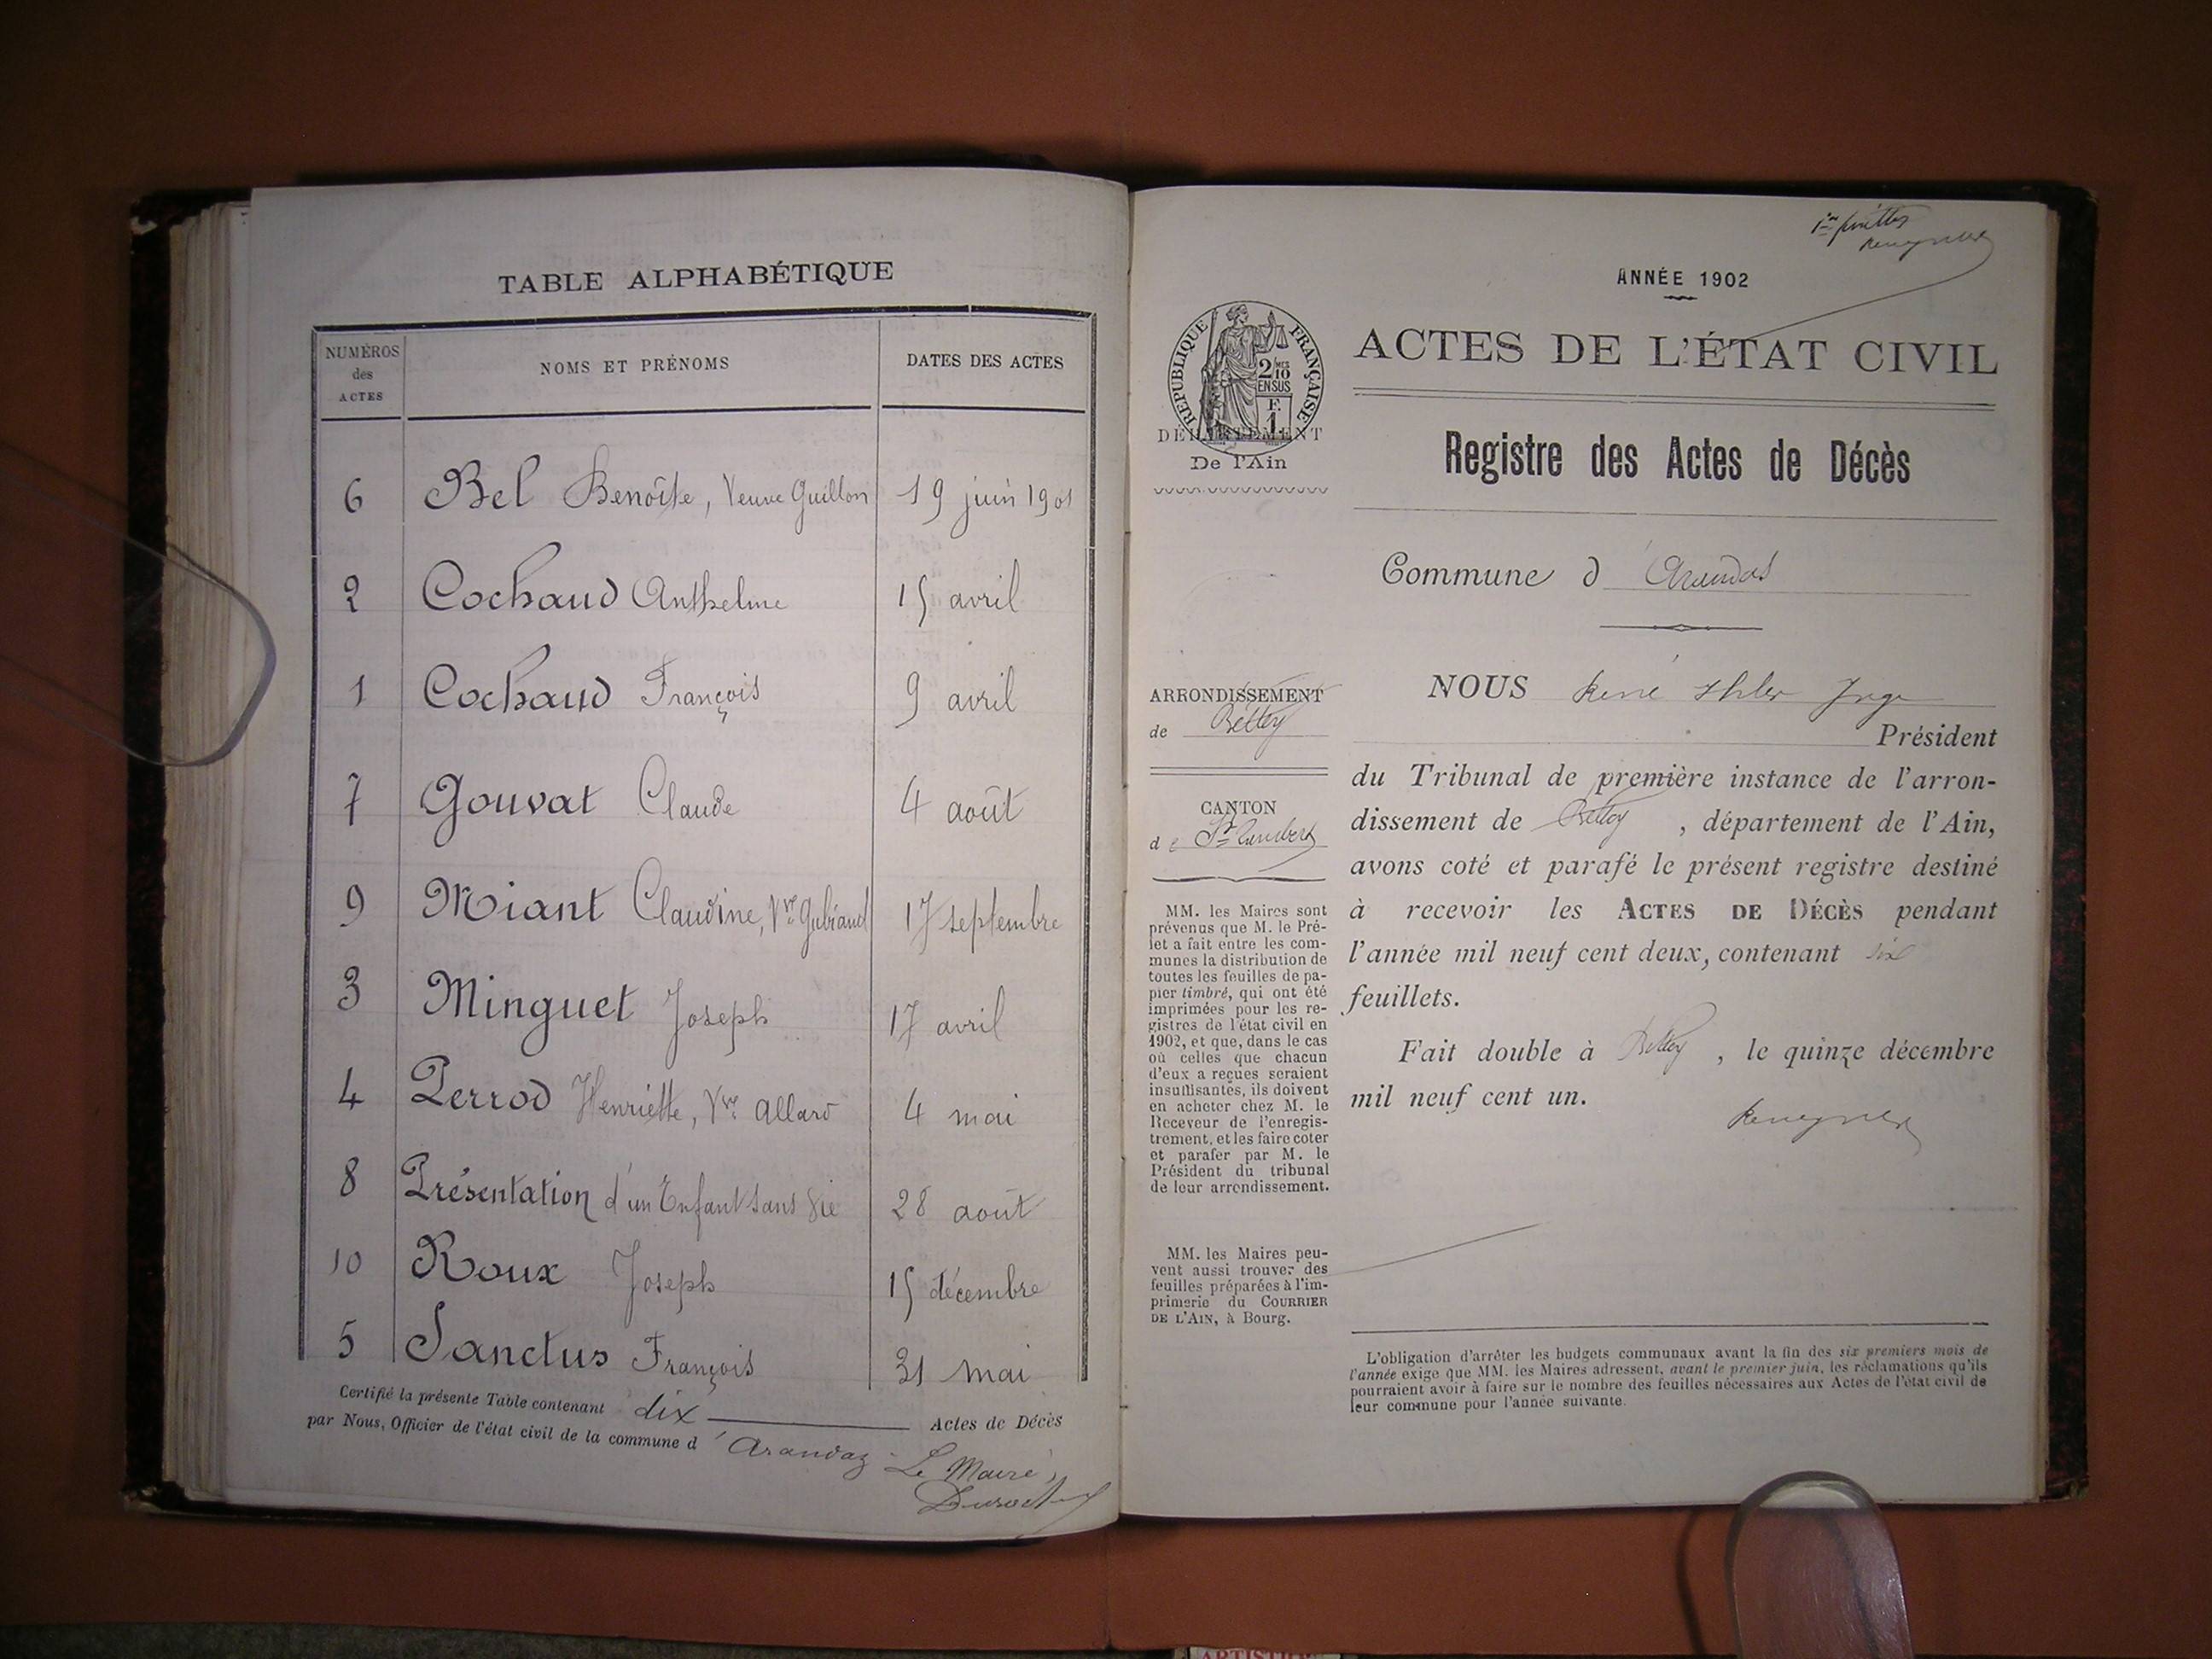 TABLE ALPHABÉTIQUE
NUMÉROS des ACTES NOMS ET PRÉNOMS DATES DES ACTES
6 Bel Benoîte, Veuve Guillon 19 juin 1901
2 Cochaud Anthelme 15 avril
1 Cochaud François 9 avril
7 Gouvat Claude 4 août
9 Miant Claudine, Vve 17 septembre
3 Minguet Joseph 17 avril
4 Perrod Henriette, Vve Allard 4 mai
8 Présentation d'un Enfant sans Vie 28 août
10 Roux Joseph 15 décembre
5 Sanctus François 31 mai
Certifié la présente Table contenant dix Actes de Décès
par Nous, Officier de l'état civil de la commune d'Arandaz Le Maire,
1er
ANNÉE 1902
ACTES DE L'ÉTAT CIVIL
Registre des Actes de Décès
Commune d'Arandas
NOUS René Juge
Président
du Tribunal de première instance de l'arron-
dissement de Belley, département de l'Ain,
avons coté et parafé le présent registre destiné
à recevoir les ACTES DE DÉCÈS pendant
l'année mil neuf cent deux, contenant six
feuillets.
Fait double à Belley, le quinze décembre
mil neuf cent un.
RÉPUBLIQUE FRANÇAISE
2/10 MES
EN SUS
F.
1
DÉPARTEMENT
De l'Ain
ARRONDISSEMENT
de Belley
CANTON
de St Rambert
MM. les Maires sont
prévenus que M. le Pré-
fet a fait entre les com-
munes la distribution de
toutes les feuilles de pa-
pier timbré, qui ont été
imprimées pour les re-
gistres de l'état civil en
1902, et que, dans le cas
où celles que chacun
d'eux a reçues seraient
insuffisantes, ils doivent
en acheter chez M. le
Receveur de l'enregis-
trement, et les faire coter
et parafer par M. le
Président du tribunal
de leur arrondissement.
MM. les Maires peu-
vent aussi trouver des
feuilles préparées à l'im-
primerie du COURRIER
DE L'AIN, à Bourg.
L'obligation d'arrêter les budgets communaux avant la fin des six premiers mois de
l'année exige que MM. les Maires adressent, avant le premier juin, les réclamations qu'ils
pourraient avoir à faire sur le nombre des feuilles nécessaires aux Actes de l'état civil de
leur commune pour l'année suivante.